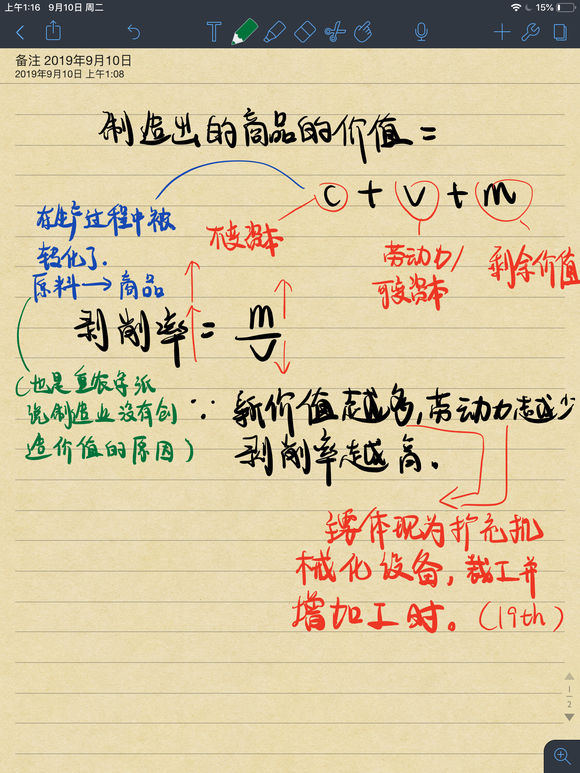 上午1:16 9月10日 周二
15%
备注 2019年9月10日
2019年9月10日 上午1:08
制造出的商品的价值 =
c + v + m
不变资本
劳动力/
可变资本
剩余价值
在生产过程中被
转化了.
原料→商品
剥削率 = m/v
(也是重农学派
说制造业没有创
造价值的原因)
∵ 新价值越多,劳动力越少
剥削率越高.
主要体现为扩充机
械化设备,裁工并
增加工时。(19th)
1
2